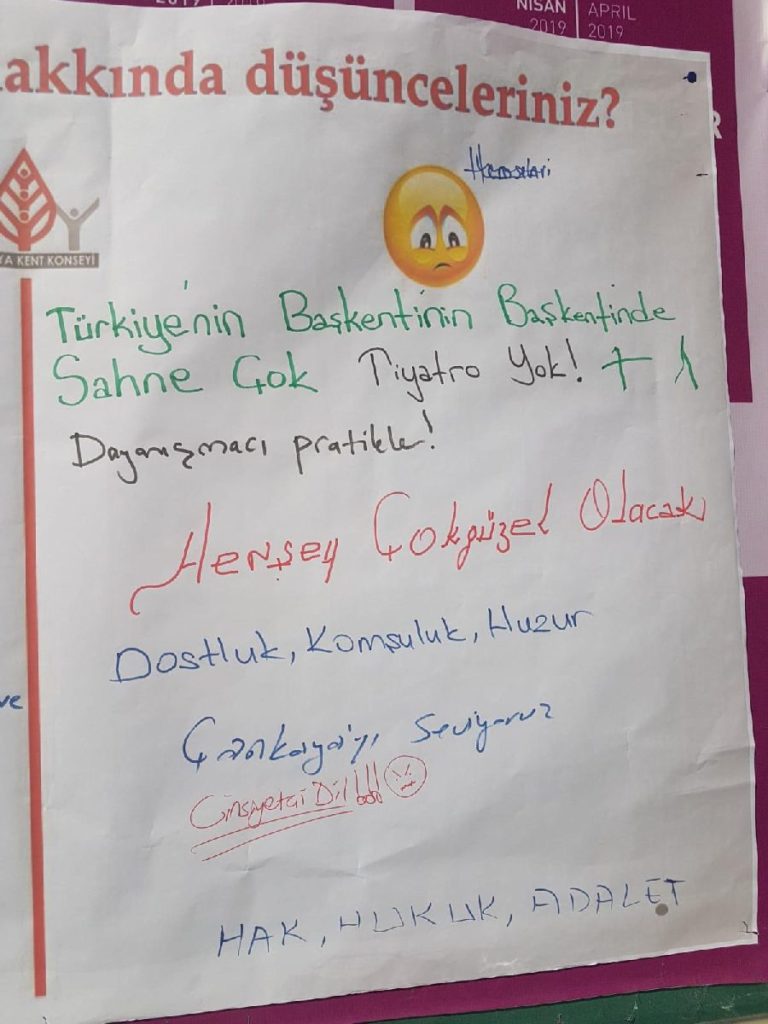 NİSAN
2019
APRIL
2019
akkında düşünceleriniz?
YA KENT KONSEYİ
Türkiye'nin Başkentinin Başkentinde
Sahne Çok Tiyatro Yok! + 1
Dayanışmacı pratikler!
Herşey Çokgüzel Olacak
Dostluk, Komşuluk, Huzur
ve
Çankaya'yı seviyoruz
Cinsiyetçi Dil!!!
HAK, HUKUK, ADALET